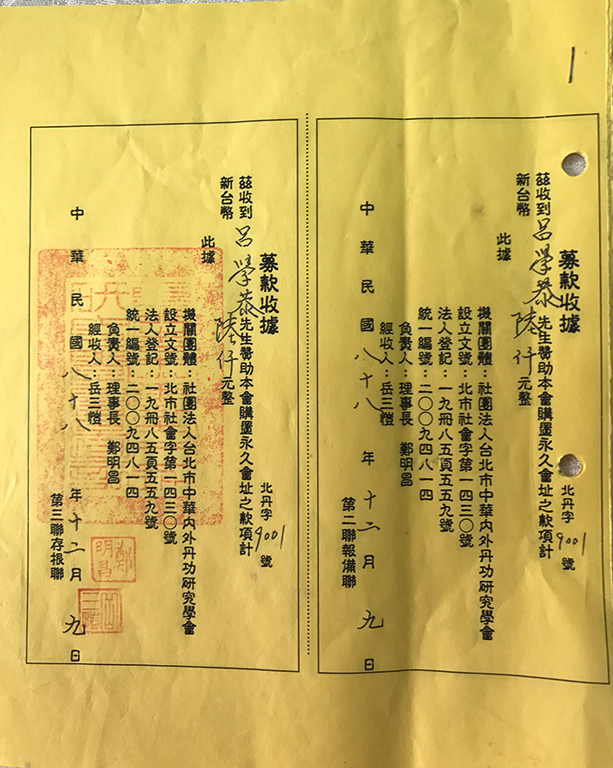 募款收據
北丹字9001號
茲收到呂學泰先生贊助本會購置永久會址之款項計
新台幣陸仟元整
此據
機關團體：社團法人台北市中華內外丹功研究學會
設立文號：北市社會字第一四三〇號
法人登記：一九冊八五頁五五九號
統一編號：二〇〇九四八一四
負責人：理事長 鄭明昌
經收人：岳三愷
中華民國八十八年十二月九日
第二聯報備聯
募款收據
北丹字9001號
茲收到呂學泰先生贊助本會購置永久會址之款項計
新台幣陸仟元整
此據
機關團體：社團法人台北市中華內外丹功研究學會
設立文號：北市社會字第一四三〇號
法人登記：一九冊八五頁五五九號
統一編號：二〇〇九四八一四
負責人：理事長 鄭明昌
經收人：岳三愷
中華民國八十八年十二月九日
第三聯存根聯
鄭明昌